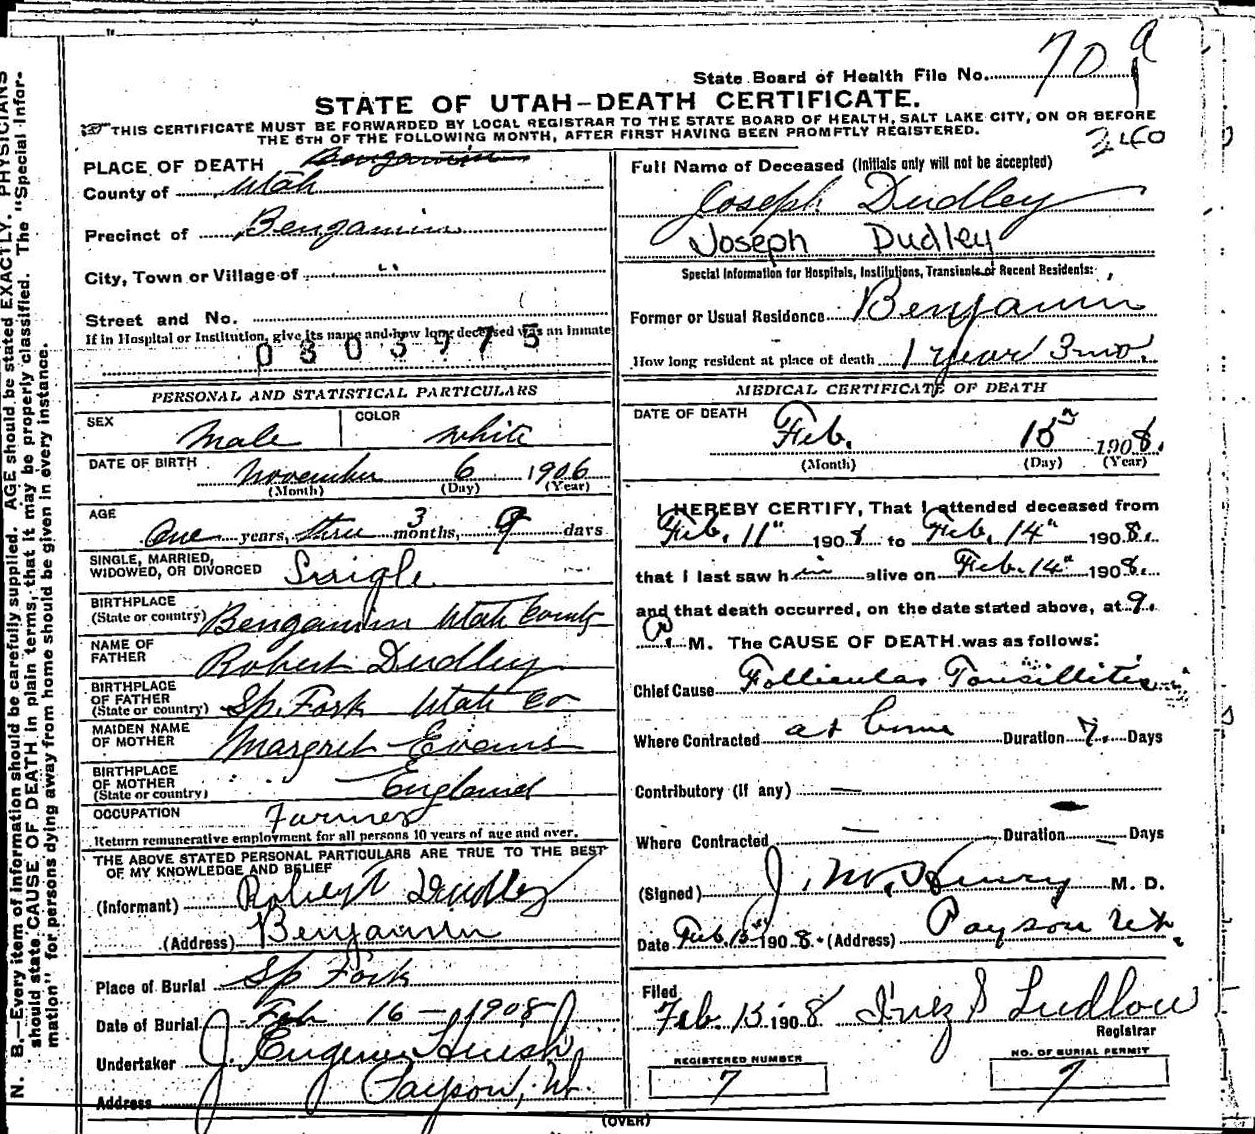 70 a
State Board of Health File No.
STATE OF UTAH—DEATH CERTIFICATE.
THIS CERTIFICATE MUST BE FORWARDED BY LOCAL REGISTRAR TO THE STATE BOARD OF HEALTH, SALT LAKE CITY, ON OR BEFORE
THE 5TH OF THE FOLLOWING MONTH, AFTER FIRST HAVING BEEN PROMPTLY REGISTERED.
2460
PLACE OF DEATH Bengamin
County of Utah
Precinct of Bengamin
City, Town or Village of "
Street and No.
If in Hospital or Institution, give its name and how long deceased was an inmate
0303775
PERSONAL AND STATISTICAL PARTICULARS
SEX Male COLOR White
DATE OF BIRTH November 6 1906
(Month) (Day) (Year)
AGE One years, three 3 months, 9 days
SINGLE, MARRIED,
WIDOWED, OR DIVORCED Single
BIRTHPLACE
(State or country) Bengamin Utah County
NAME OF
FATHER Robert Dudley
BIRTHPLACE
OF FATHER
(State or country) Sp. Fork Utah Co
MAIDEN NAME
OF MOTHER Margret Evans
BIRTHPLACE
OF MOTHER
(State or country) England
OCCUPATION Farmer
Return remunerative employment for all persons 10 years of age and over.
THE ABOVE STATED PERSONAL PARTICULARS ARE TRUE TO THE BEST
OF MY KNOWLEDGE AND BELIEF
(Informant) Robert Dudley
(Address) Benjamin
Place of Burial Sp Fork
Date of Burial Feb 16 - 1908
Undertaker J. Eugene
Address Payson, Ut.
Full Name of Deceased (Initials only will not be accepted)
Joseph Dudley
Joseph Dudley
Special Information for Hospitals, Institutions, Transients or Recent Residents:
Former or Usual Residence Benjamin
How long resident at place of death 1 year 3 mo.
MEDICAL CERTIFICATE OF DEATH
DATE OF DEATH Feb. 15" 1908.
(Month) (Day) (Year)
I HEREBY CERTIFY, That I attended deceased from
Feb. 11" 1908 to Feb. 14" 1908.
that I last saw him alive on Feb. 14" 1908.
and that death occurred, on the date stated above, at 9.
A. M. The CAUSE OF DEATH was as follows:
Chief Cause Follicular Tonsillitis
Where Contracted at home Duration 7. Days
Contributory (if any) —
Where Contracted — Duration Days
(Signed) J. M. Henry M. D.
Date Feb. 15" 1908. (Address) Payson Ut.
Filed
Feb. 15 1908 Inez S Ludlow
Registrar
REGISTERED NUMBER
7
NO. OF BURIAL PERMIT
7
(OVER)
N. B.—Every item of information should be carefully supplied. AGE should be stated EXACTLY. PHYSICIANS
should state CAUSE OF DEATH in plain terms, that it may be properly classified. The "Special Infor-
mation" for persons dying away from home should be given in every instance.